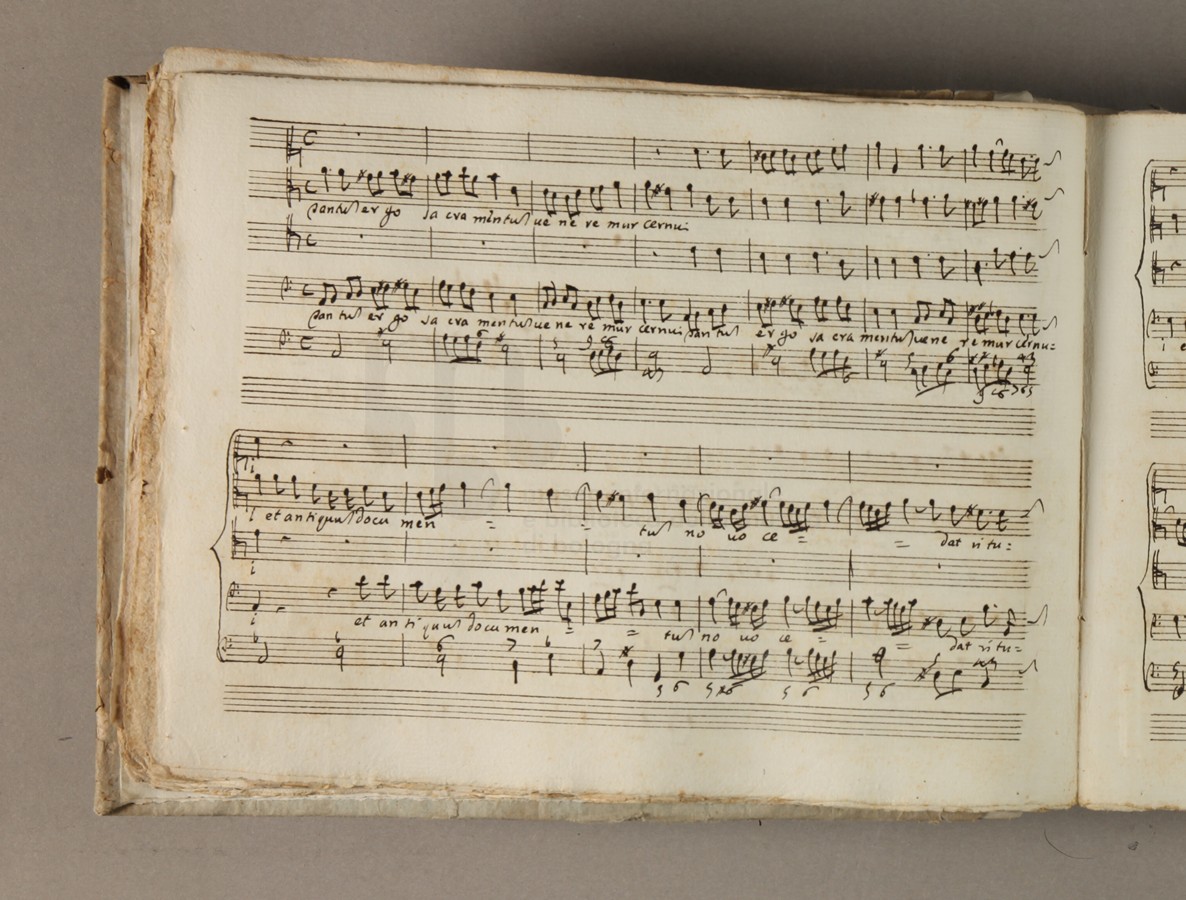 Tantu er go sa cra mentu ue ne re mur cernui
Tan tu er go sa cra mentu ue ne re mur cernui Tan tu er go sa cra mentu uene re mur cernu=
i et antiquu docu men = = tu no uo ce = = dat ri tu=
i
i et an ti quu docu men = = tu no uo ce = = dat ri tu=